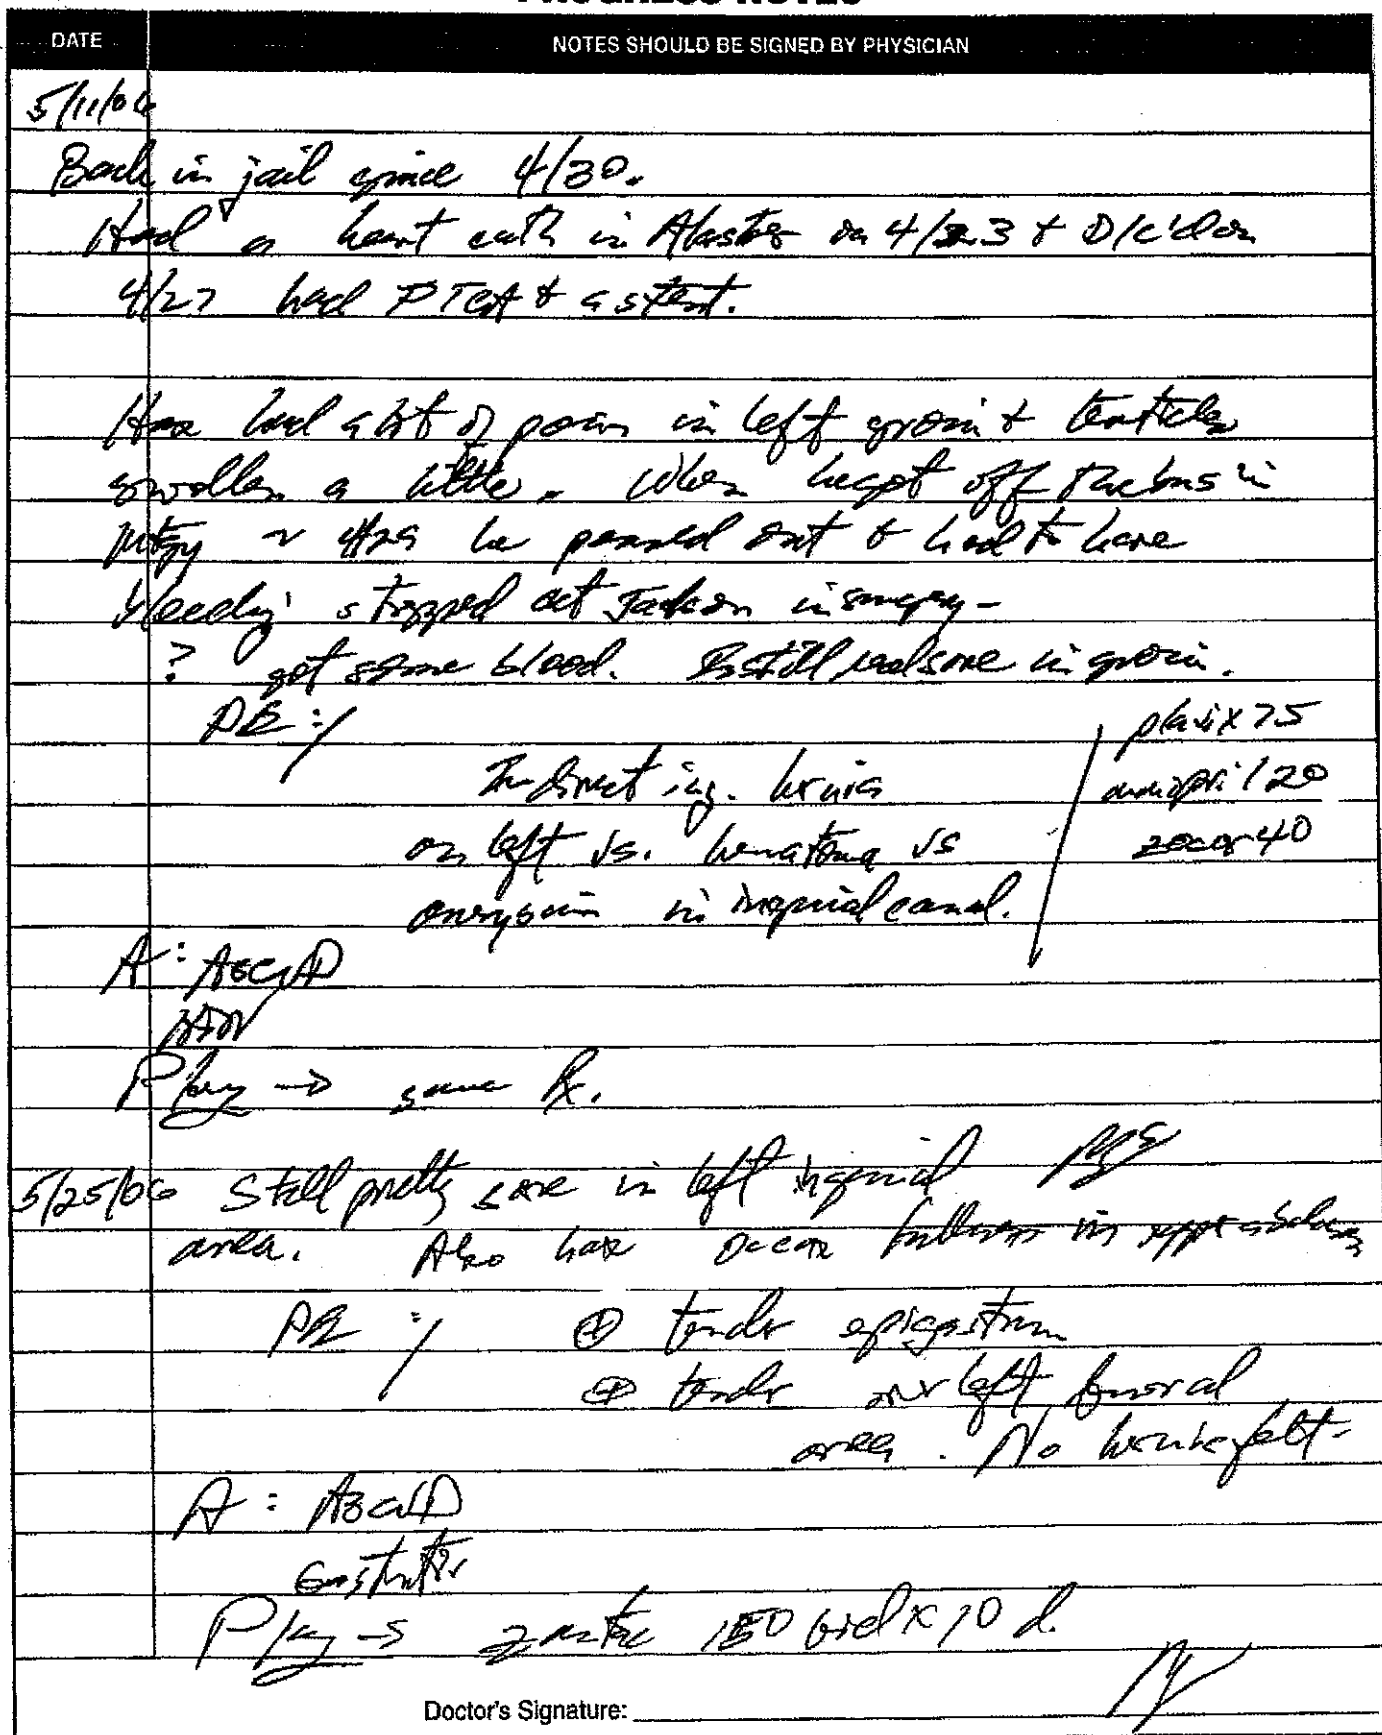 PROGRESS NOTES
DATE NOTES SHOULD BE SIGNED BY PHYSICIAN
5/11/06
Back in jail since 4/30.
Had a heart cath in Alaster on 4/23 & D/C'd on
4/27 had PTCA & a stent.
Has had a lot of pain in left groin & testicles
swollen a little. When he got off the bus in
he passed out & had to have
bleeding stopped at Jackson in surgery -
? got some blood. Is still real sore in groin.
PE :/ plavix 75
Indirect ing. hernia 20
on left vs. hematoma vs zocor 40
aneurysm in inguinal canal.
A: ASCVD
Plan → same Rx.
5/25/06 Still pretty sore in left inguinal
area. Also has occas fullness in upper abdomen
PE :/ ⊕ tender epigastrum
⊕ tender over left femoral
area. No hernia felt.
A: ASCVD
Gastritis
Plan → zantac 150 bid x 10 d.
Doctor's Signature: